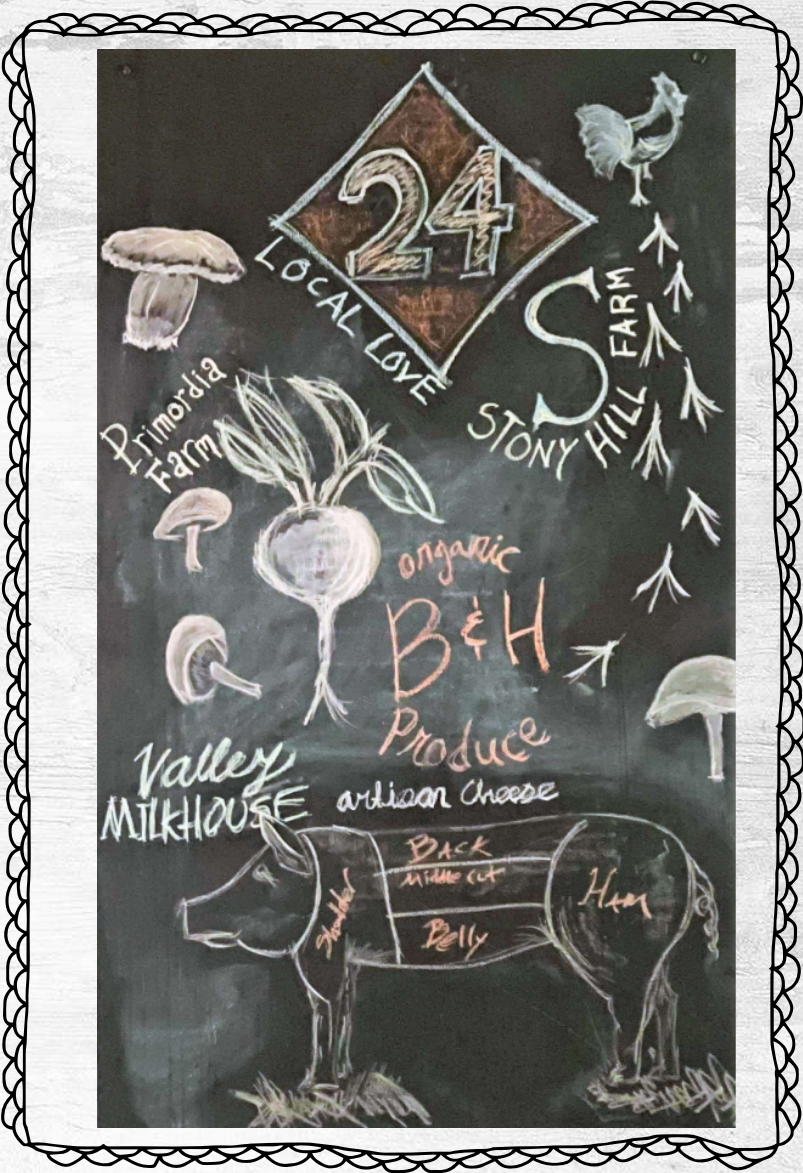 24
LOCAL LOVE
S
STONY HILL FARM
Primordia
Farm
organic
B & H
Produce
Valley
MILKHOUSE
artisan Cheese
Shoulder
BACK
Middle cut
Belly
HAM